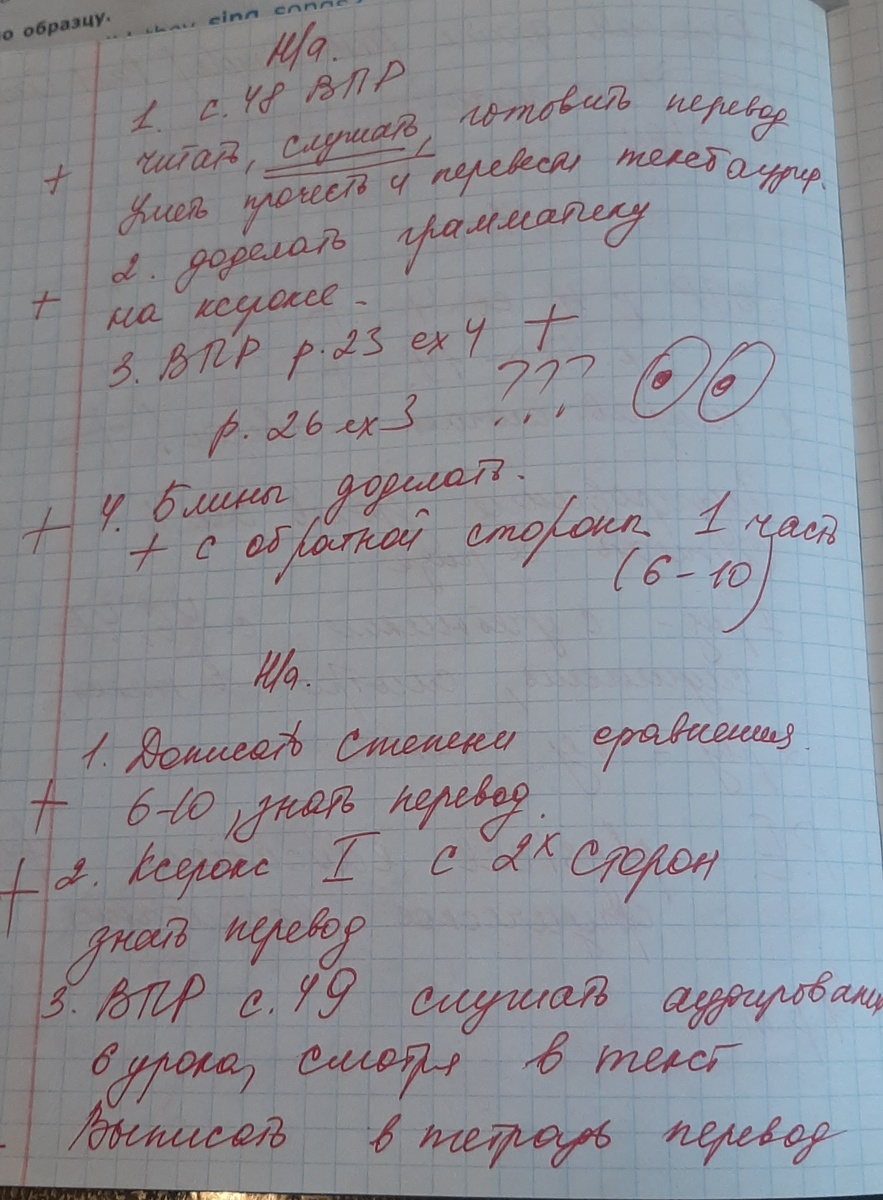 о образцу.
they sing songs
Н/а.
1. с. 48 ВПР
+ читать, слушать, готовить перевод
Уметь прочесть и перевести текст аудир.
2. доделать грамматику
+ на ксероксе.
3. ВПР р. 23 ex 4 +
р. 26 ex 3 ???
+ 4. Блины доделать.
+ с обратной стороны 1 часть
(6-10)
Н/а.
1. Дописать степени сравнения.
+ 6-10, знать перевод.
+ 2. Ксерокс I с 2х сторон
знать перевод
3. ВПР с. 49 слушать аудировани
6 урока, смотря в текст
Выписать в тетрадь перевод